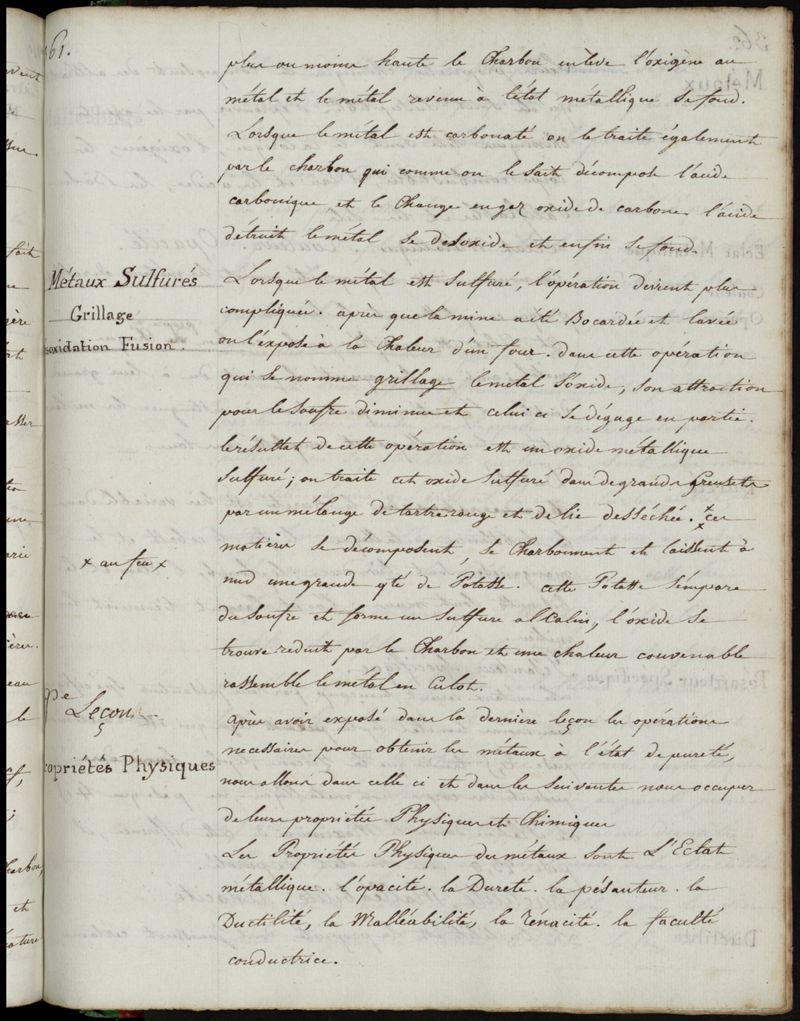 61.
plus ou moins haute le Charbon enlève l'oxigène au
métal et le métal revenu à l'état métallique se fond.
Lorsque le métal est carbonaté on le traite également
par le charbon qui comme on le sait décompose l'acide
carbonique et le Change en gaz oxide de carbone. l'acide
détruit le métal se desoxide et enfin se fond.
Métaux Sulfurés
Grillage
soxidation Fusion.
Lorsque le métal est sulfuré, l'opération devient plus
compliquée. après que la mine a été Bocardée et lavée
on l'expose à la Chaleur d'un four. dans cette opération
qui se nomme grillage le métal s'oxide, son attraction
pour le soufre diminue et celui ci se dégage en partie.
le résultat de cette opération est un oxide métallique
Sulfuré; on traite cet oxide sulfuré dans de grands Creusets
par un mélange de tartre rouge et de lie desséchée. x ces
x au feu x
matières se décomposent, se Charbonnent et laissent à
nud une grande qté de Potasse. cette Potasse s'empare
du soufre et forme un sulfure alcalin, l'oxide se
trouve reduit par le Charbon et une chaleur convenable
rassemble le métal en Culot.
pe Leçon
opriétés Physiques
Après avoir exposé dans la dernière leçon les opérations
necessaires pour obtenir les métaux à l'état de pureté,
nous allons dans celle ci et dans les suivantes nous occuper
de leurs propriétés Physiques et Chimiques
Les Propriétés Physiques des métaux sont L'Eclat
métallique. l'opacité. la Dureté. la pésanteur. la
Ductilité, la Malléabilité, la Ténacité. la faculté
conductrice.